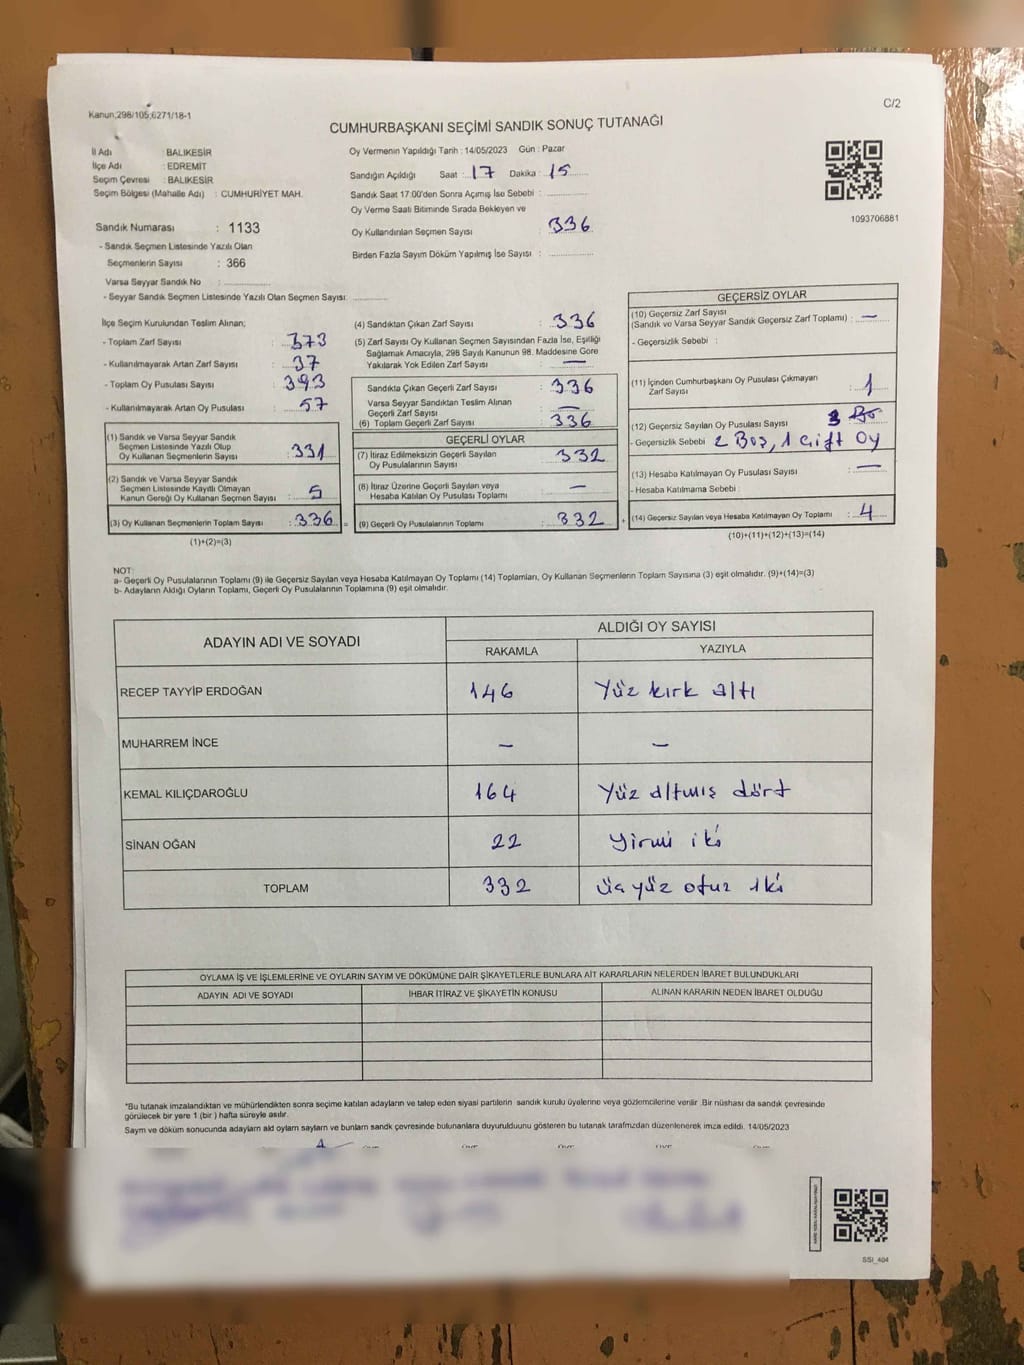 Kanun;298/105;6271/18-1
C/2
CUMHURBAŞKANI SEÇİMİ SANDIK SONUÇ TUTANAĞI
İl Adı : BALIKESİR
İlçe Adı : EDREMİT
Seçim Çevresi : BALIKESİR
Seçim Bölgesi (Mahalle Adı) : CUMHURİYET MAH.
Oy Vermenin Yapıldığı Tarih : 14/05/2023 Gün : Pazar
Sandığın Açıldığı Saat : 17 Dakika : 15
Sandık Saat 17:00'den Sonra Açımış İse Sebebi :
Oy Verme Saati Bitiminde Sırada Bekleyen ve
Oy Kullandırılan Seçmen Sayısı : 336
Birden Fazla Sayım Döküm Yapılmış İse Sayısı :
1093706881
Sandık Numarası : 1133
- Sandık Seçmen Listesinde Yazılı Olan
Seçmenlerin Sayısı : 366
Varsa Seyyar Sandık No :
- Seyyar Sandık Seçmen Listesinde Yazılı Olan Seçmen Sayısı:
İlçe Seçim Kurulundan Teslim Alınan;
- Toplam Zarf Sayısı : 373
- Kullanılmayarak Artan Zarf Sayısı : 37
- Toplam Oy Pusulası Sayısı : 393
- Kullanılmayarak Artan Oy Pusulası : 57
(1) Sandık ve Varsa Seyyar Sandık
Seçmen Listesinde Yazılı Olup
Oy Kullanan Seçmenlerin Sayısı : 331
(2) Sandık ve Varsa Seyyar Sandık
Seçmen Listesinde Kayıtlı Olmayan
Kanun Gereği Oy Kullanan Seçmen Sayısı : 5
(3) Oy Kullanan Seçmenlerin Toplam Sayısı : 336 =
(1)+(2)=(3)
(4) Sandıktan Çıkan Zarf Sayısı : 336
(5) Zarf Sayısı Oy Kullanan Seçmen Sayısından Fazla İse, Eşitliği
Sağlamak Amacıyla, 298 Sayılı Kanunun 98. Maddesine Göre
Yakılarak Yok Edilen Zarf Sayısı : —
Sandıkta Çıkan Geçerli Zarf Sayısı : 336
Varsa Seyyar Sandıktan Teslim Alınan
Geçerli Zarf Sayısı : —
(6) Toplam Geçerli Zarf Sayısı : 336
GEÇERLİ OYLAR
(7) İtiraz Edilmeksizin Geçerli Sayılan
Oy Pusulalarının Sayısı : 332
(8) İtiraz Üzerine Geçerli Sayılan veya
Hesaba Katılan Oy Pusulası Toplamı : —
(9) Geçerli Oy Pusulalarının Toplamı : 332 +
GEÇERSİZ OYLAR
(10) Geçersiz Zarf Sayısı
(Sandık ve Varsa Seyyar Sandık Geçersiz Zarf Toplamı) : —
- Geçersizlik Sebebi :
(11) İçinden Cumhurbaşkanı Oy Pusulası Çıkmayan
Zarf Sayısı : 1
(12) Geçersiz Sayılan Oy Pusulası Sayısı : 3
- Geçersizlik Sebebi 2 Boş, 1 çift oy
(13) Hesaba Katılmayan Oy Pusulası Sayısı : —
- Hesaba Katılmama Sebebi :
(14) Geçersiz Sayılan veya Hesaba Katılmayan Oy Toplamı : 4
(10)+(11)+(12)+(13)=(14)
NOT:
a- Geçerli Oy Pusulalarının Toplamı (9) ile Geçersiz Sayılan veya Hesaba Katılmayan Oy Toplamı (14) Toplamları, Oy Kullanan Seçmenlerin Toplam Sayısına (3) eşit olmalıdır. (9)+(14)=(3)
b- Adayların Aldığı Oyların Toplamı, Geçerli Oy Pusulalarının Toplamına (9) eşit olmalıdır.
ADAYIN ADI VE SOYADI
ALDIĞI OY SAYISI
RAKAMLA YAZIYLA
RECEP TAYYİP ERDOĞAN 146 Yüz kırk altı
MUHARREM İNCE — —
KEMAL KILIÇDAROĞLU 164 Yüz altmış dört
SİNAN OĞAN 22 Yirmi iki
TOPLAM 332 Üç yüz otuz iki
OYLAMA İŞ VE İŞLEMLERİNE VE OYLARIN SAYIM VE DÖKÜMÜNE DAİR ŞİKAYETLERLE BUNLARA AİT KARARLARIN NELERDEN İBARET BULUNDUKLARI
ADAYIN ADI VE SOYADI İHBAR İTİRAZ VE ŞİKAYETİN KONUSU ALINAN KARARIN NEDEN İBARET OLDUĞU
*Bu tutanak imzalandıktan ve mühürlendikten sonra seçime katılan adayların ve talep eden siyasi partilerin sandık kurulu üyelerine veya gözlemcilerine verilir .Bir nüshası da sandık çevresinde
görülecek bir yere 1 (bir ) hafta süreyle asılır.
Sayım ve döküm sonucunda adayların ald oyların sayların ve bunların sandk çevresinde bulunanlara duyurulduunu gösteren bu tutanak tarafmzdan düzenlenerek imza edildi. 14/05/2023
SSI_404